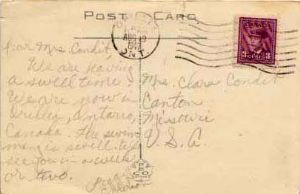 POST CARD
AUG 19
ONT.
Dear Mrs. Condit
We are having
a swell time.
We are now in
Orillia, Ontario,
Canada. The swim
ming is swell. We'll
see you in a week
or two.
Mrs. Clara Condit
Canton
Missouri
U.S.A.
3
3